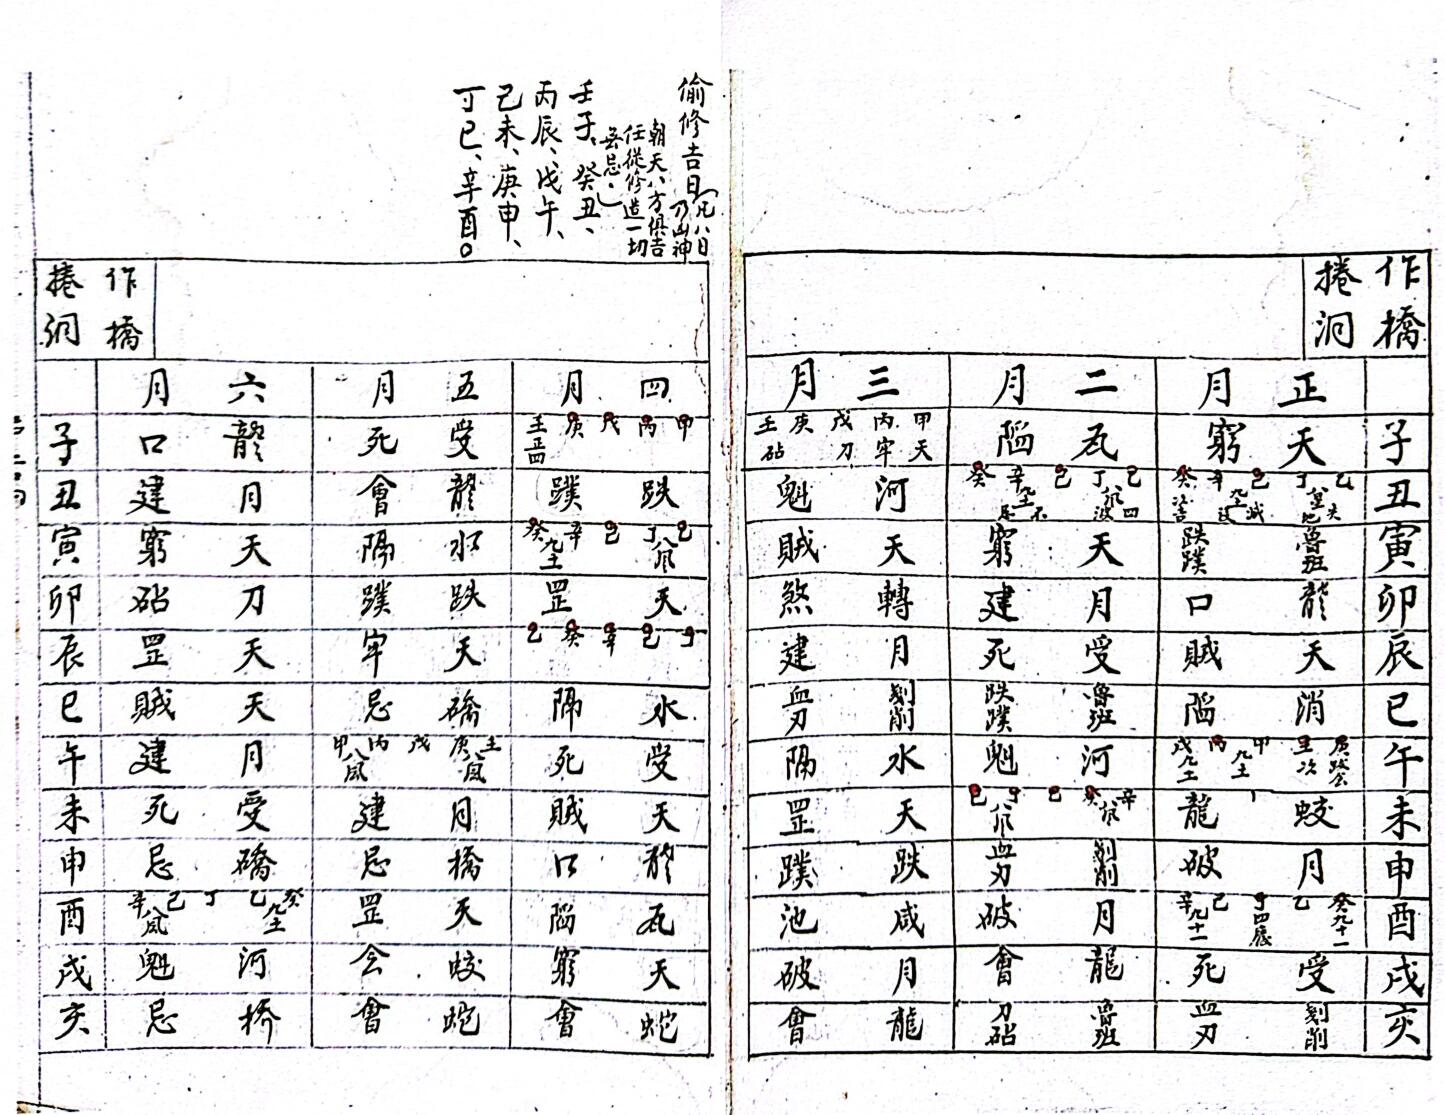 偷修吉日
(凡八日乃山神
朝天、八方俱吉
任從修造一切
無忌。)
壬子、癸丑、
丙辰、戊午、
己未、庚申、
丁巳、辛酉。
作橋
捲洞
正月 二月 三月
子 天窮 瓦陷 甲天 丙牢 戊刀 庚 壬砧
丑 乙 丁 己 辛 癸 己 丁 己 辛 癸 河魁
寅 魯班跌蹼 天窮 天賊
卯 龍口 月建 轉煞
辰 天賊 受死 月建
巳 消陷 魯班跌蹼 剗削血刃
午 庚 壬 甲 丙 戊 河魁 水隔
未 蛟龍 辛 癸 己 丁 己 天罡
申 月破 剗削血刃 跌蹼
酉 癸 乙 丁 己 辛 月破 咸池
戌 受死 龍會 月破
亥 剗削血刃 魯班刀砧 龍會
作橋
捲洞
四月 五月 六月
子 甲 丙 戊 庚 壬 受死 龍口
丑 跌蹼 龍會 月建
寅 乙 丁八風 己 辛 癸九土 水隔 天窮
卯 天罡 跌蹼 刀砧
辰 丁 己 辛 癸 乙 天牢 天罡
巳 水隔 橋忌 天賊
午 受死 壬 庚八風 戊 丙 甲八風 月建
未 天賊 月建 受死
申 龍口 橋忌 橋忌
酉 瓦陷 天罡 癸 乙 丁 己 辛八風
戌 天窮 蛟会 河魁
亥 蛇會 蛇會 橋忌